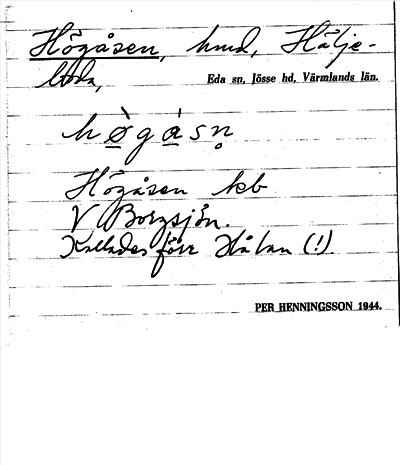 Högåsen, hmd, Hälje-
boda,
Eda sn, Jösse hd, Värmlands län.
hø̀gåsn̥
Högåsen kb
V Borgsjön.
Kallades förr Hålan (!).
PER HENNINGSSON 1944.